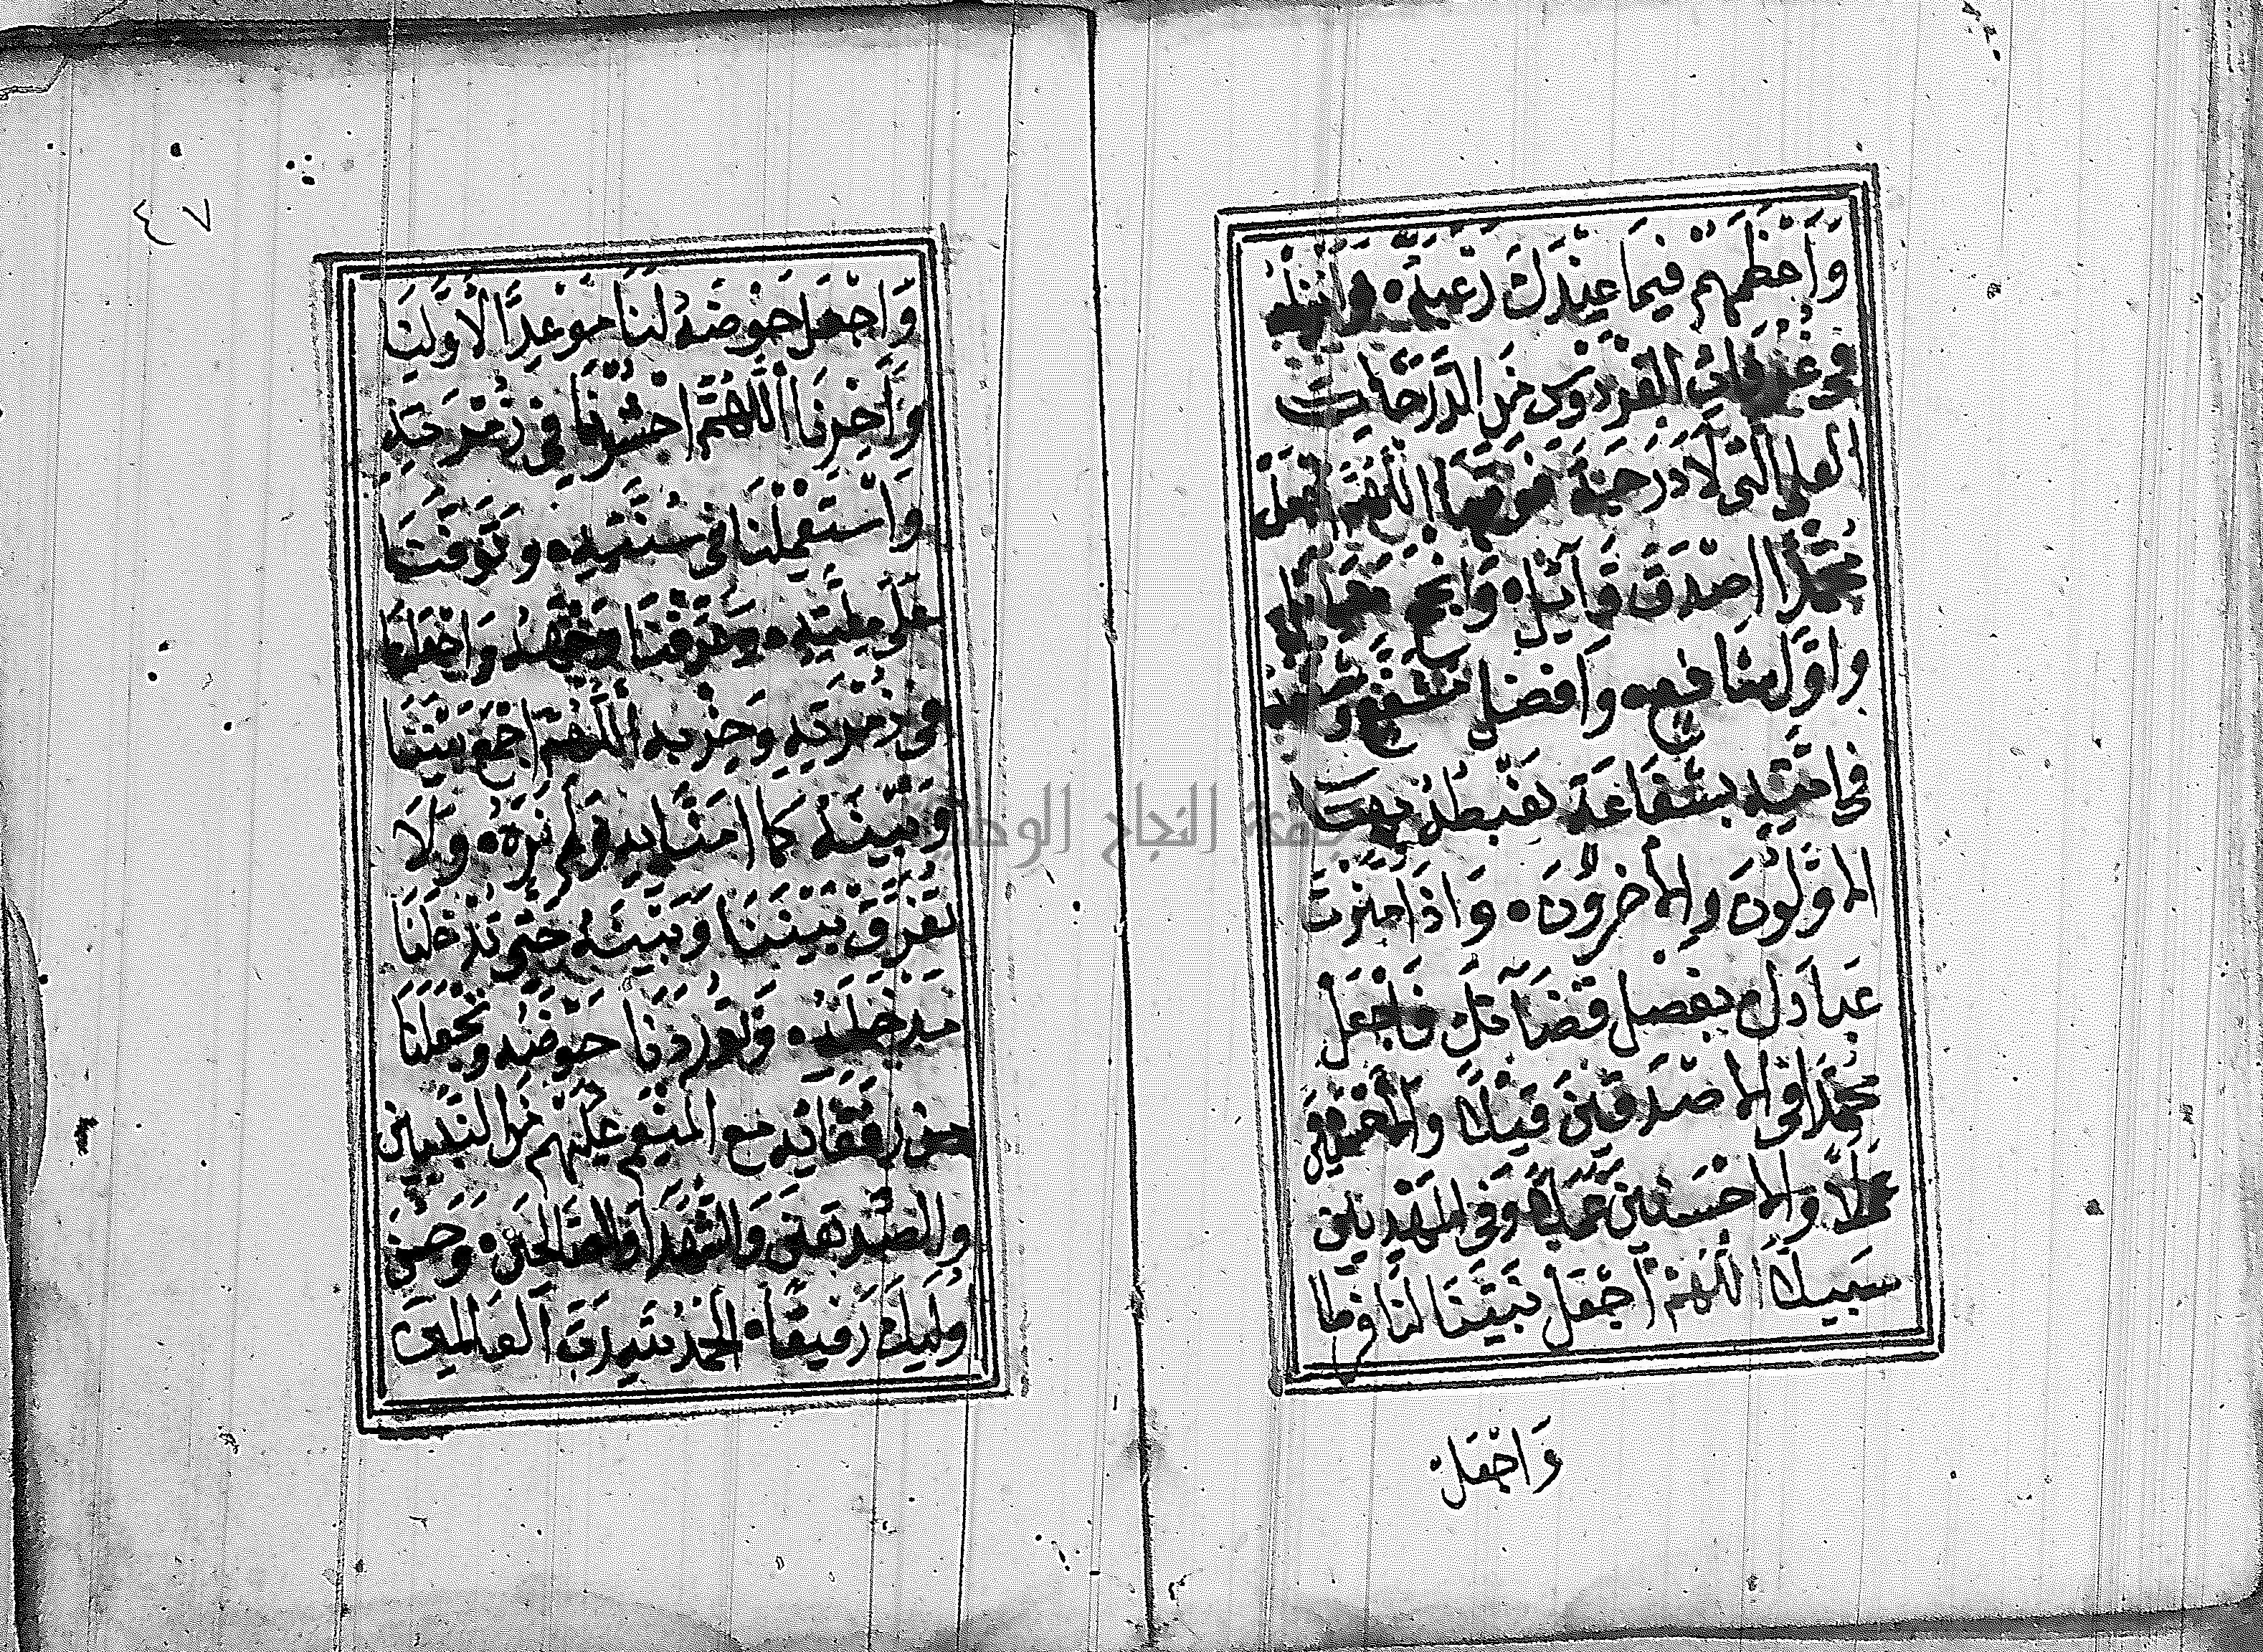 وَاَحْظَهُمْ فِيمَا عِنْدَكَ رَغْبَةً وَاَنْزِلْهُ
فِى غُرُفَاتِ الفِرْدَوْسِ مِنَ الدَّرَجَاتِ
العُلَى الَّتِى لَا دَرَجَةَ فَوْقَهَا اللّٰهُمَّ اجْعَلْ
مُحَمَّدًا اصْدَقَ قَآئِلٍ وَاَنْجَحَ سَائِلٍ
وَاَوَّلَ شَافِعٍ وَاَفْضَلَ مُشَفَّعٍ وَشَفِّعْهُ
فِى امَّتِهِ بِشَفَاعَةٍ يَغْبِطُهُ بِهَا
الاَوَّلُونَ وَالاَخِرُونَ وَاِذَا مَيَّزْتَ
عِبَادَكَ بِفَصْلِ قَضَآئِكَ فَاجْعَلْ
مُحَمَّدًا فِى الاَصْدَقِينَ قِيلًا وَالاَحْسَنِينَ
عَمَلًا وَفِى المَهْدِيِّينَ
سَبِيلًا اللّٰهُمَّ اَجْعَلْ نَبِيَّنَا لَنَا فَرَطًا
وَاجْعَلْ
٤٧
وَاجْعَلْ حَوْضَهُ لَنَا مَوْعِدًا لِاَوَّلِنَا
وَاَخِرِنَا اَللّٰهُمَّ احْشُرْنَا فِى زُمْرَتِهِ
وَاسْتَعْمِلْنَا فِى سُنَّتِهِ وَتَوَفَّنَا
عَلَى مِلَّتِهِ وَعَرِّفْنَا وَجْهَهُ وَاجْعَلْنَا
فِى زُمْرَتِهِ وَحِزْبِهِ اَللّٰهُمَّ اجْمَعْ بَيْنَنَا
وَبَيْنَهُ كَمَا امَنَّا بِهِ وَلَمْ نَرَهُ وَلَا
تُفَرِّقْ بَيْنَنَا وَبَيْنَهُ حَتَّى تُدْخِلَنَا
مَدْخَلَهُ وَتُورِدَنَا حَوْضَهُ وَتَجْعَلَنَا
مِنْ رُفَقَائِهِ مَعَ المُنْعَمِ عَلَيْهِمْ مِنَ النَّبِيِّينَ
وَالصِّدِّيقِينَ وَالشُّهَدَا وَالصَّالِحِينَ وَحَسُنَ
اُولَئِكَ رَفِيقًا الحَمْدُ لِلّٰهِ رَبِّ العَالَمِينَ
جامعة النجاح الوطنية